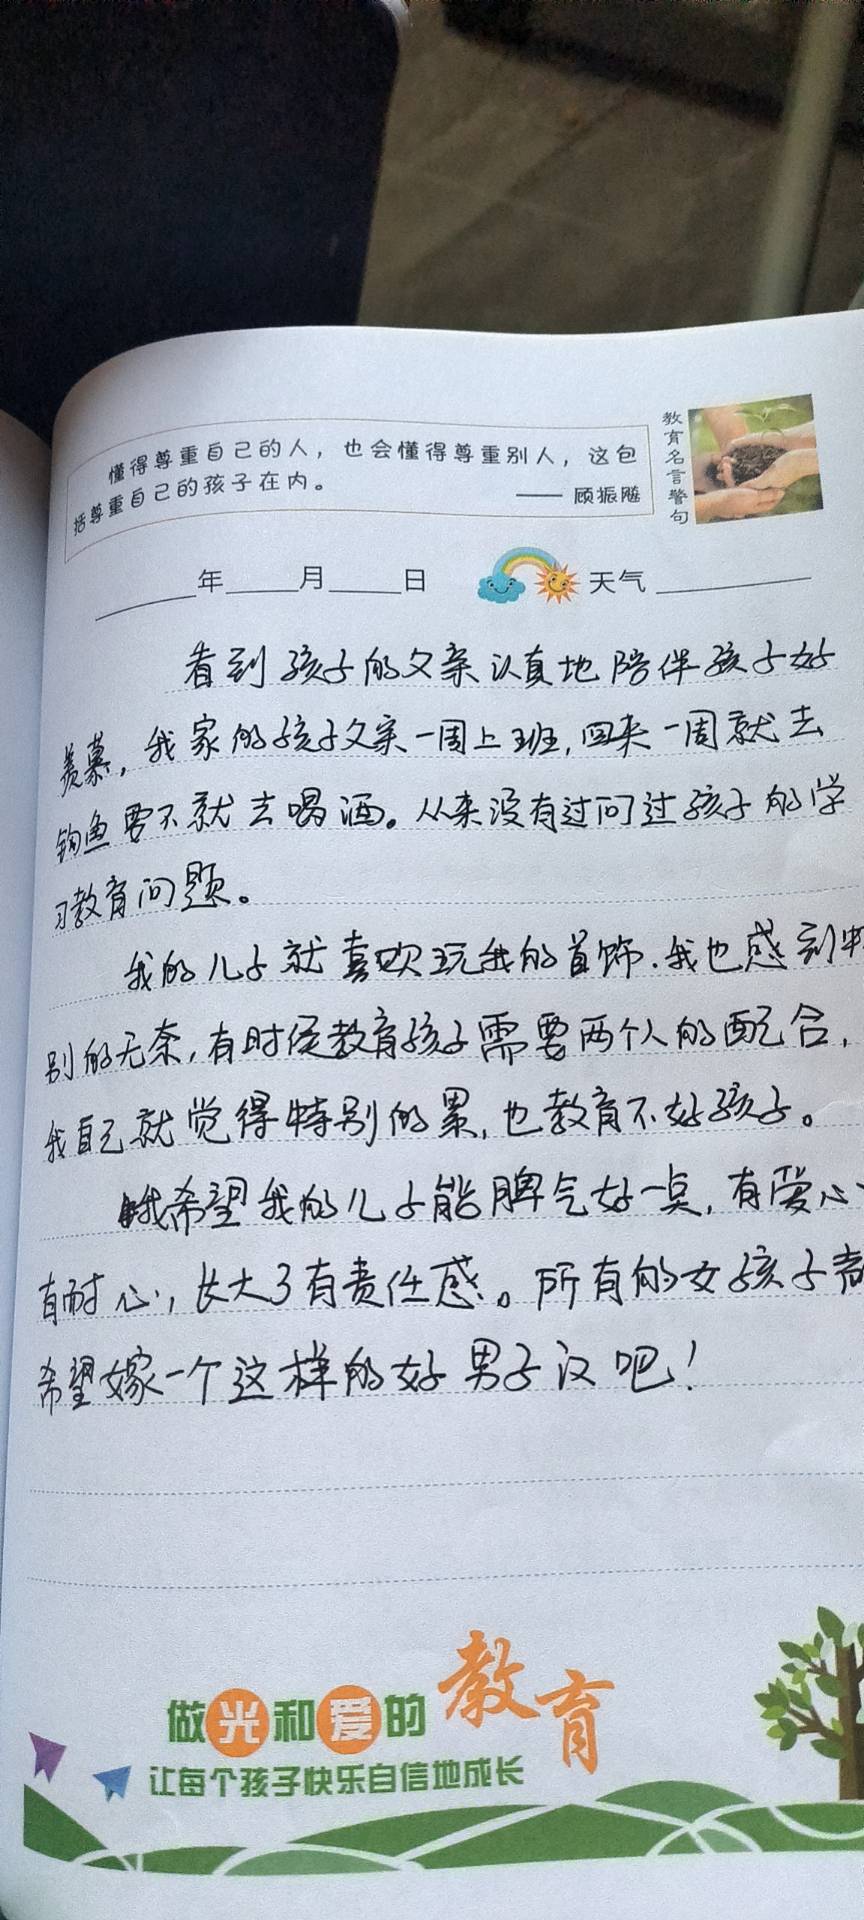 懂得尊重自己的人，也会懂得尊重别人，这包
括尊重自己的孩子在内。
—— 顾振飚
教育名言警句
年 月 日 天气
看到孩子的父亲认真地陪伴孩子好
羡慕，我家的孩子父亲一周上班，回来一周就去
钓鱼要不就去喝酒。从来没有过问过孩子的学
习教育问题。
我的儿子就喜欢玩我的首饰.我也感到特
别的无奈，有时侯教育孩子需要两个人的配合，
我自己就觉得特别的累，也教育不好孩子。
我希望我的儿子能脾气好一点，有爱心、
有耐心，长大了有责任感。所有的女孩子都
希望嫁一个这样的好男子汉吧！
做光和爱的教育
让每个孩子快乐自信地成长